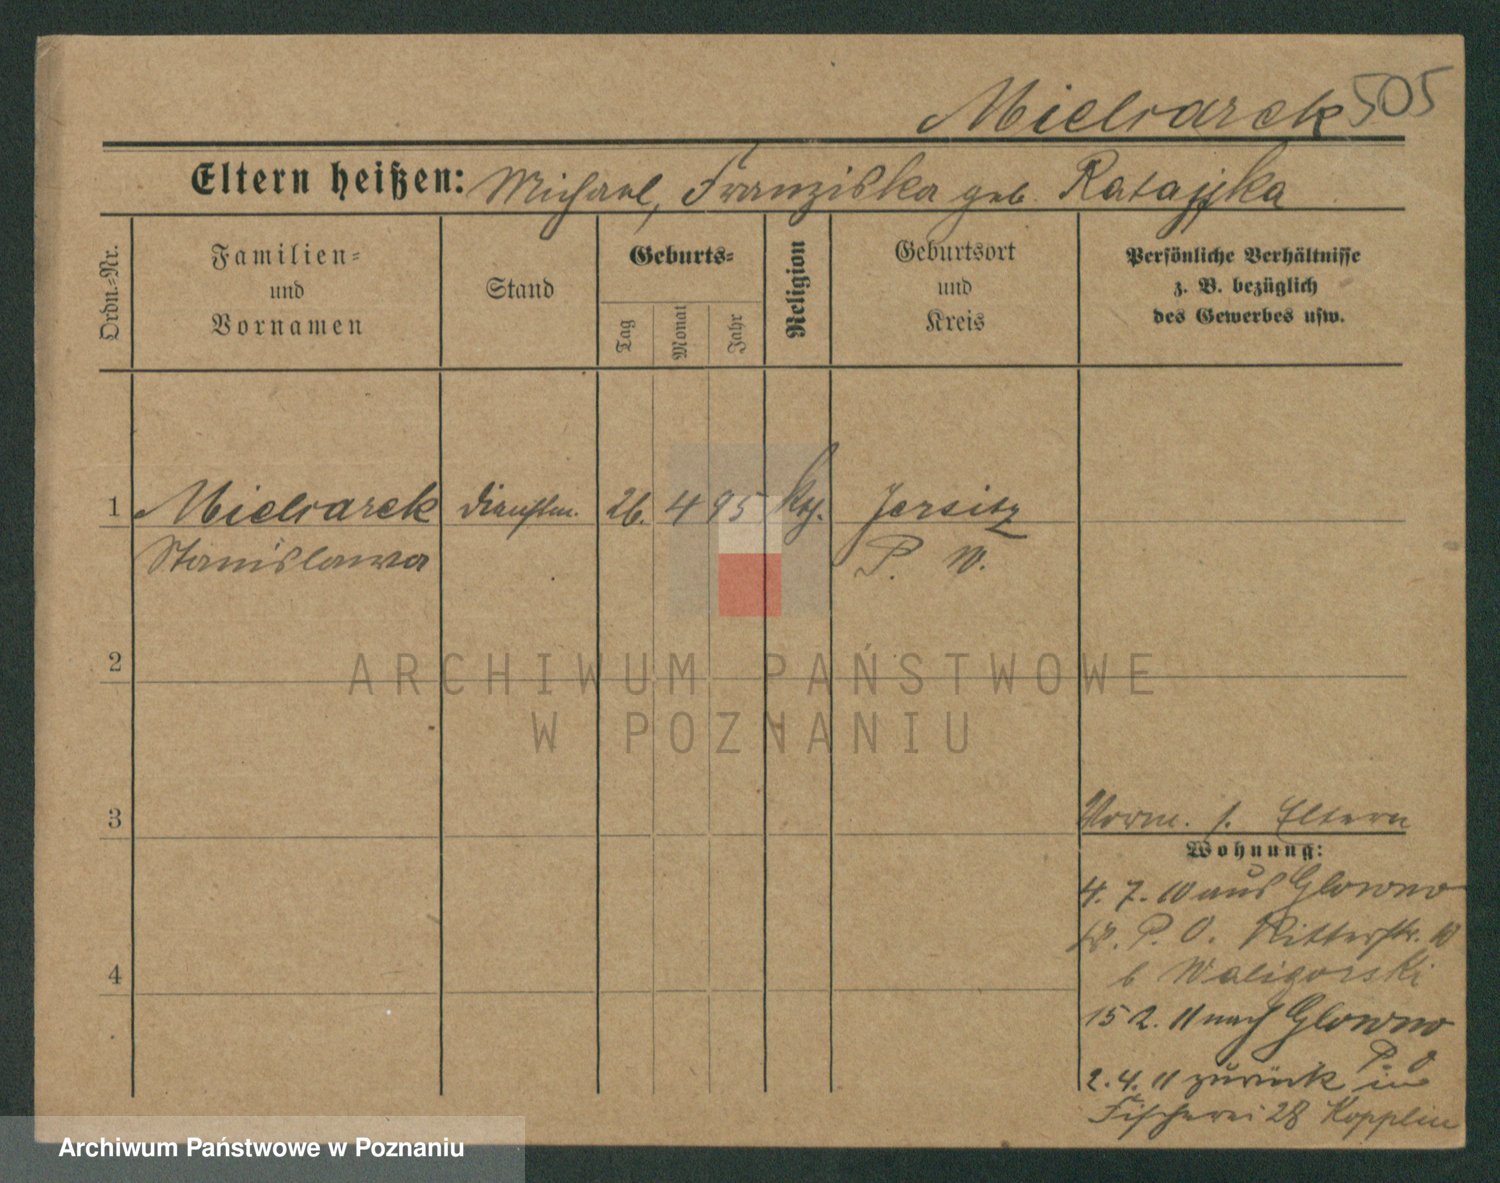 Mielcarek 505
Eltern heißen: Michael, Franziska geb. Ratajska
Ordn.-Nr.
Familien-
und
Vornamen
Stand
Geburts-
Tag
Monat
Jahr
Religion
Geburtsort
und
Kreis
Persönliche Verhältnisse
z. B. bezüglich
des Gewerbes usw.
1 Mielcarek Dienstm. 26. 4 95 kth. Jersitz
Stanislawa P. W.
2
ARCHIWUM PAŃSTWOWE
W POZNANIU
3
Vorm. s. Eltern
Wohnung:
4. 7. 10 aus Glowno
P. O. Ritterstr. 10
b Waligorski
4
15 2. 11 nach Glowno
P. O
2. 4. 11 zurück in
Fischerei 28 Kopplin
Archiwum Państwowe w Poznaniu